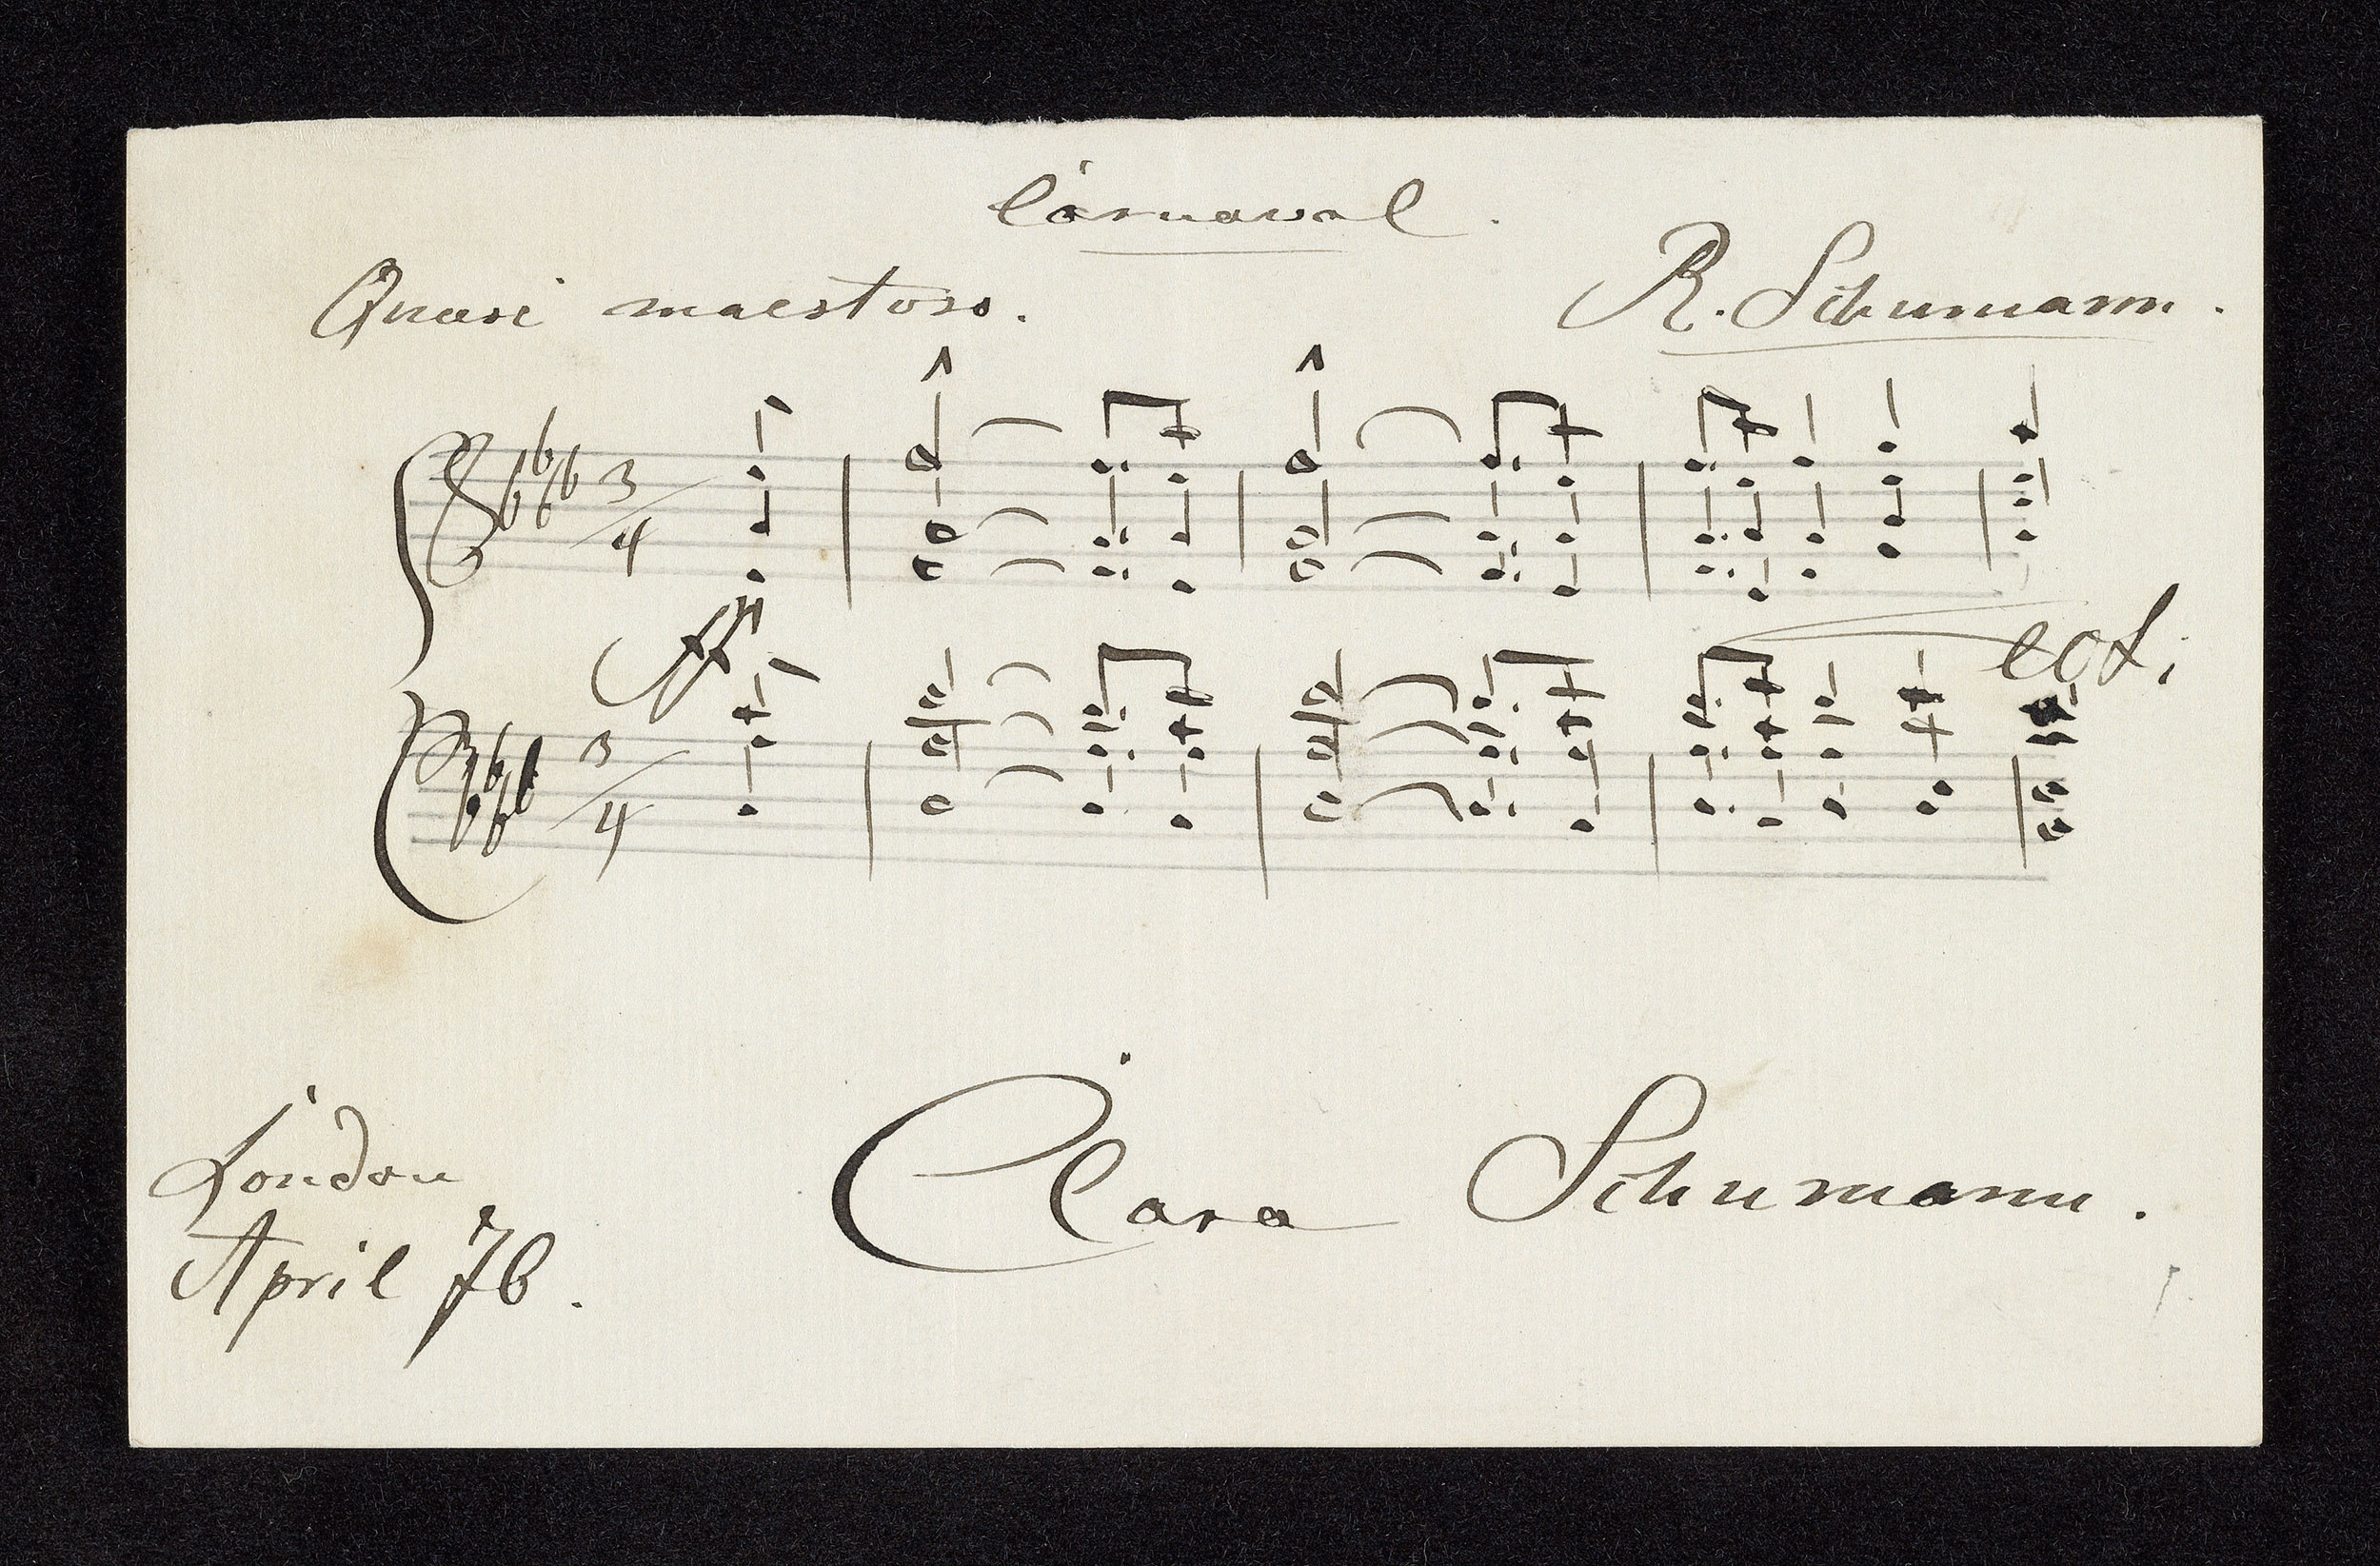 Carnaval.
Quasi maestoso.
R. Schumann.
3/4
ff
ect.
3/4
London
April 76.
Clara Schumann.